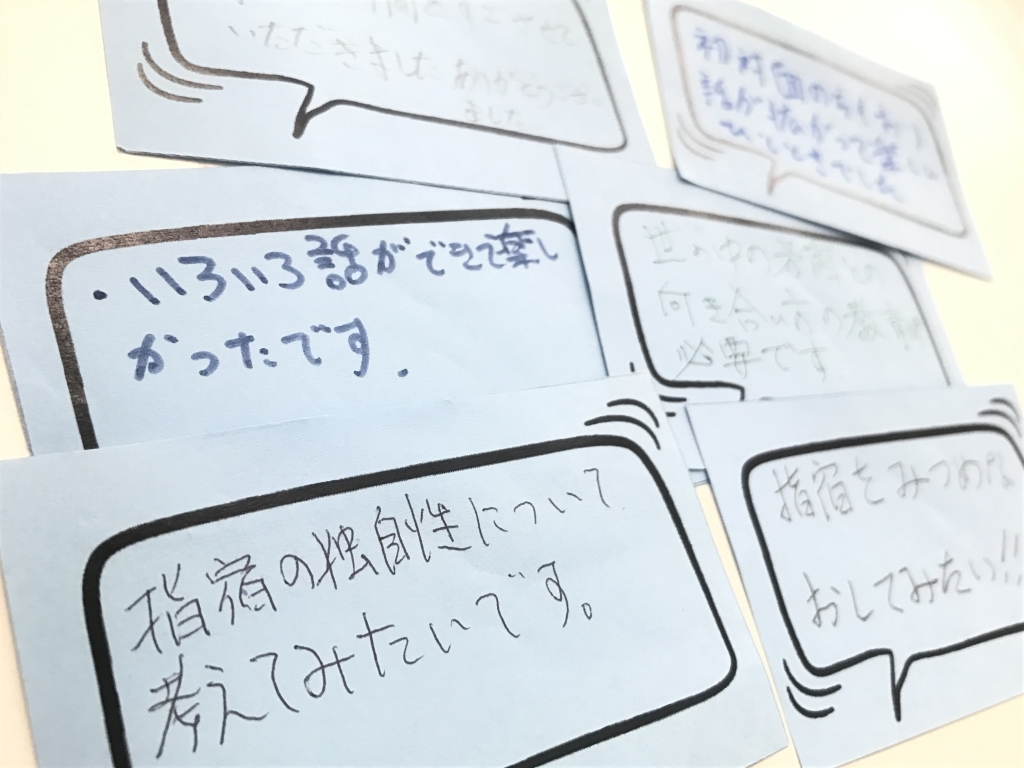 いただきました ありがとうござい
ました
初対面の
話が拡がって楽しい
ひとときでした
・いろいろ話ができて楽し
かったです.
世の中の
向き合い方の教育
必要です
指宿の独自性について
考えてみたいです。
指宿をみつめな
おしてみたい!!